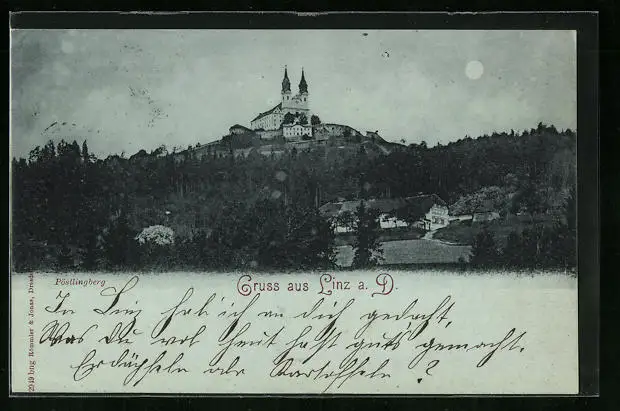 Pöstlingberg
Gruss aus Linz a. D.
In Linz hab ich an Dich gedacht,
Was Du wol heut hast gut's gemacht.
Erdäpfeln oder Kartoffeln?
2949 Römmler & Jonas, Dresden